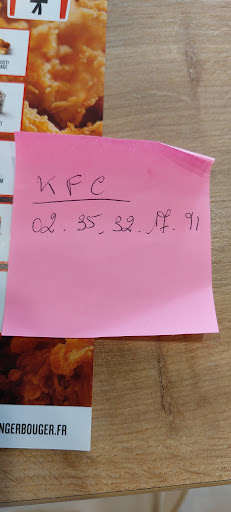 KFC
02.35.32.17.91
NGERBOUGER.FR